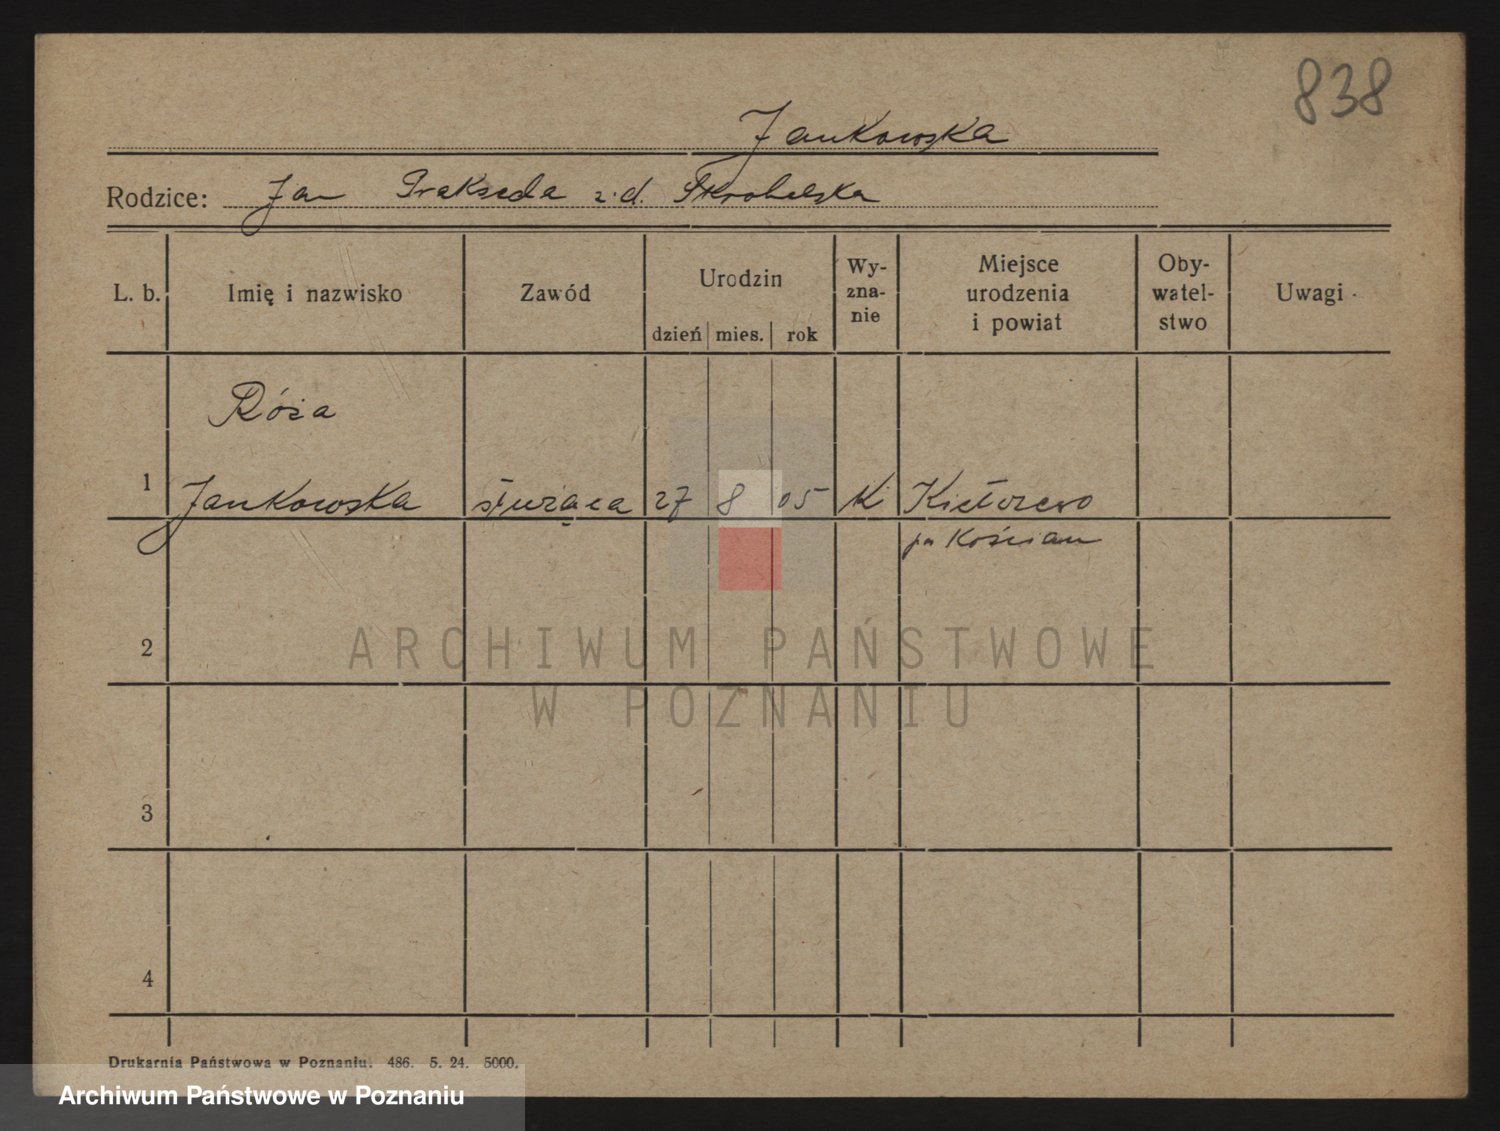 838
Jankowska
Rodzice: Jan Prakseda z.d. Skrobalska
L. b. Imię i nazwisko Zawód Urodzin dzień mies. rok Wy-zna-nie Miejsce urodzenia i powiat Oby-watel-stwo Uwagi
Róża
1 Jankowska służąca 27 8 05 K Kiełczewo
pa Kościan
2
3
4
ARCHIWUM PAŃSTWOWE
W POZNANIU
Drukarnia Państwowa w Poznaniu. 486. 5. 24. 5000.
Archiwum Państwowe w Poznaniu